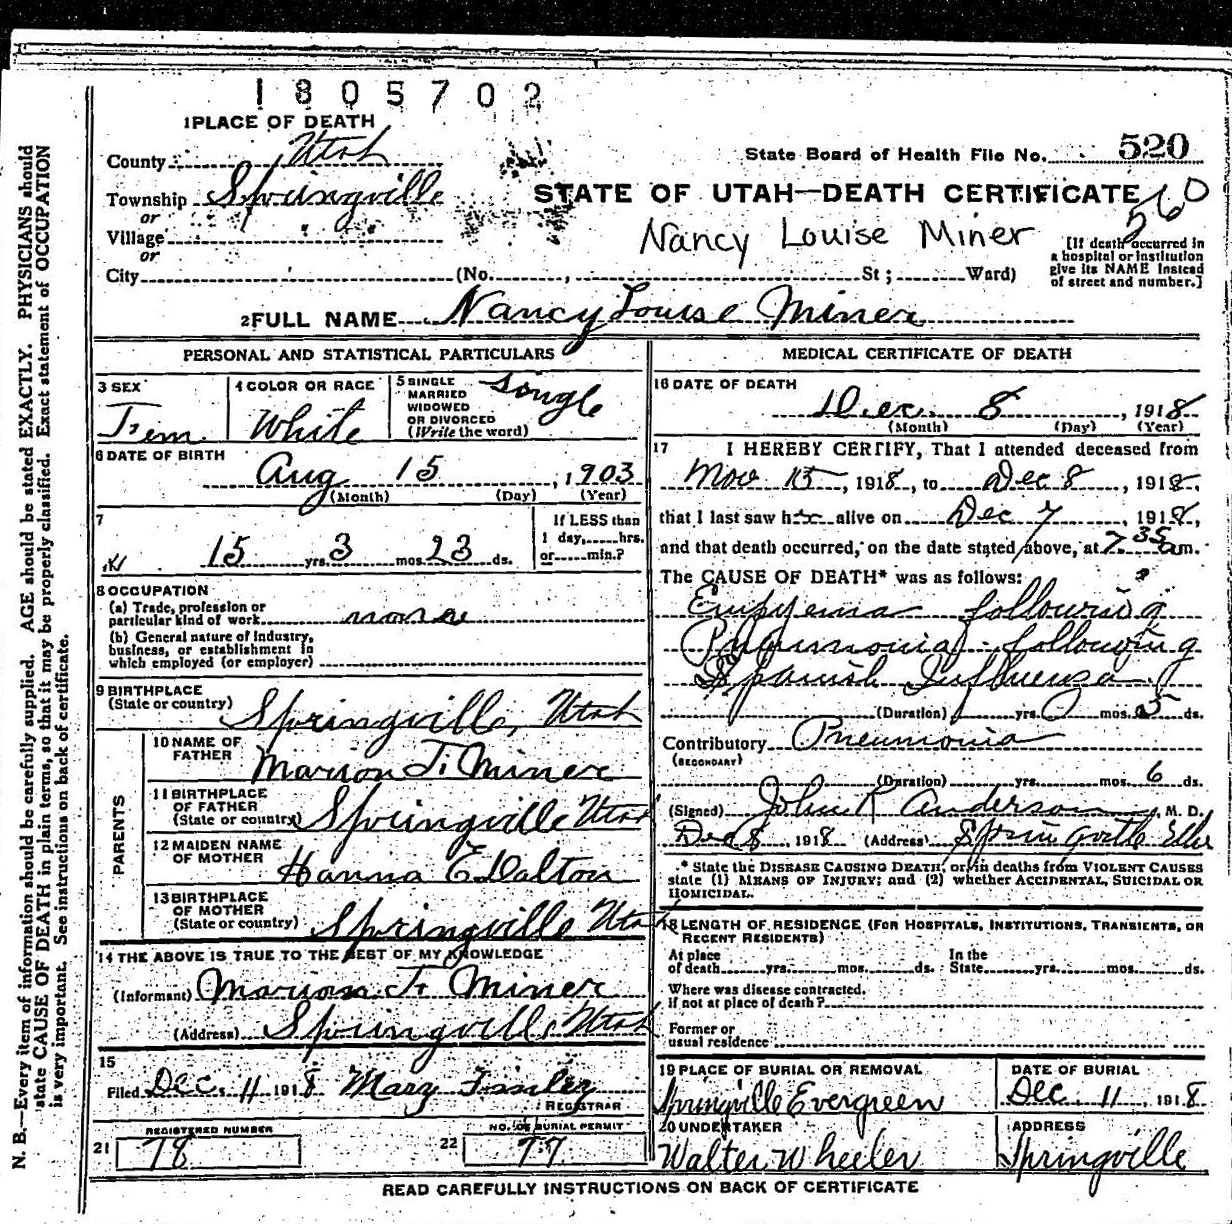 1805702
1 PLACE OF DEATH
County Utah
State Board of Health File No. 520
Township Springville
STATE OF UTAH—DEATH CERTIFICATE
560
or
Village " "
Nancy Louise Miner
or
City (No. , St ; Ward)
[If death occurred in
a hospital or institution
give its NAME instead
of street and number.]
2 FULL NAME Nancy Louise Miner
PERSONAL AND STATISTICAL PARTICULARS
3 SEX
Fem
4 COLOR OR RACE
White
5 SINGLE
MARRIED
WIDOWED
OR DIVORCED
(Write the word)
Single
6 DATE OF BIRTH
Aug 15, 1903
(Month) (Day) (Year)
7
15 yrs. 3 mos. 23 ds.
If LESS than
1 day, hrs.
or min.?
8 OCCUPATION
(a) Trade, profession or
particular kind of work none
(b) General nature of industry,
business, or establishment in
which employed (or employer)
9 BIRTHPLACE
(State or country) Springville, Utah
PARENTS
10 NAME OF
FATHER Marion F. Miner
11 BIRTHPLACE
OF FATHER
(State or country) Springville Utah
12 MAIDEN NAME
OF MOTHER Hanna E Dalton
13 BIRTHPLACE
OF MOTHER
(State or country) Springville Utah
14 THE ABOVE IS TRUE TO THE BEST OF MY KNOWLEDGE
(Informant) Marion F. Miner
(Address) Springville Utah
15
Filed Dec. 11 1918 Mary
REGISTRAR
REGISTERED NUMBER
21 78
NO. OF BURIAL PERMIT
22 77
MEDICAL CERTIFICATE OF DEATH
16 DATE OF DEATH
Dec. 8, 1918
(Month) (Day) (Year)
17 I HEREBY CERTIFY, That I attended deceased from
Nov 15, 1918, to Dec 8, 1918,
that I last saw her alive on Dec 7, 1918,
and that death occurred, on the date stated above, at 7 35 am.
The CAUSE OF DEATH* was as follows:
Empyema following
Pneumonia following
Spanish Influenza
(Duration) yrs. mos. 5 ds.
Contributory Pneumonia
(SECONDARY)
(Duration) yrs. mos. 6 ds.
(Signed) John R Anderson, M. D.
Dec 8, 1918 (Address) Springville
* State the DISEASE CAUSING DEATH, or, in deaths from VIOLENT CAUSES
state (1) MEANS OF INJURY; and (2) whether ACCIDENTAL, SUICIDAL OR
HOMICIDAL.
18 LENGTH OF RESIDENCE (FOR HOSPITALS, INSTITUTIONS, TRANSIENTS, OR
RECENT RESIDENTS)
At place In the
of death yrs. mos. ds. State yrs. mos. ds.
Where was disease contracted.
if not at place of death?
Former or
usual residence
19 PLACE OF BURIAL OR REMOVAL
Springville Evergreen
DATE OF BURIAL
Dec. 11, 1918
20 UNDERTAKER
Walter Wheeler
ADDRESS
Springville
READ CAREFULLY INSTRUCTIONS ON BACK OF CERTIFICATE
N. B.—Every item of information should be carefully supplied. AGE should be stated EXACTLY. PHYSICIANS should
state CAUSE OF DEATH in plain terms, so that it may be properly classified. Exact statement of OCCUPATION
is very important. See instructions on back of certificate.